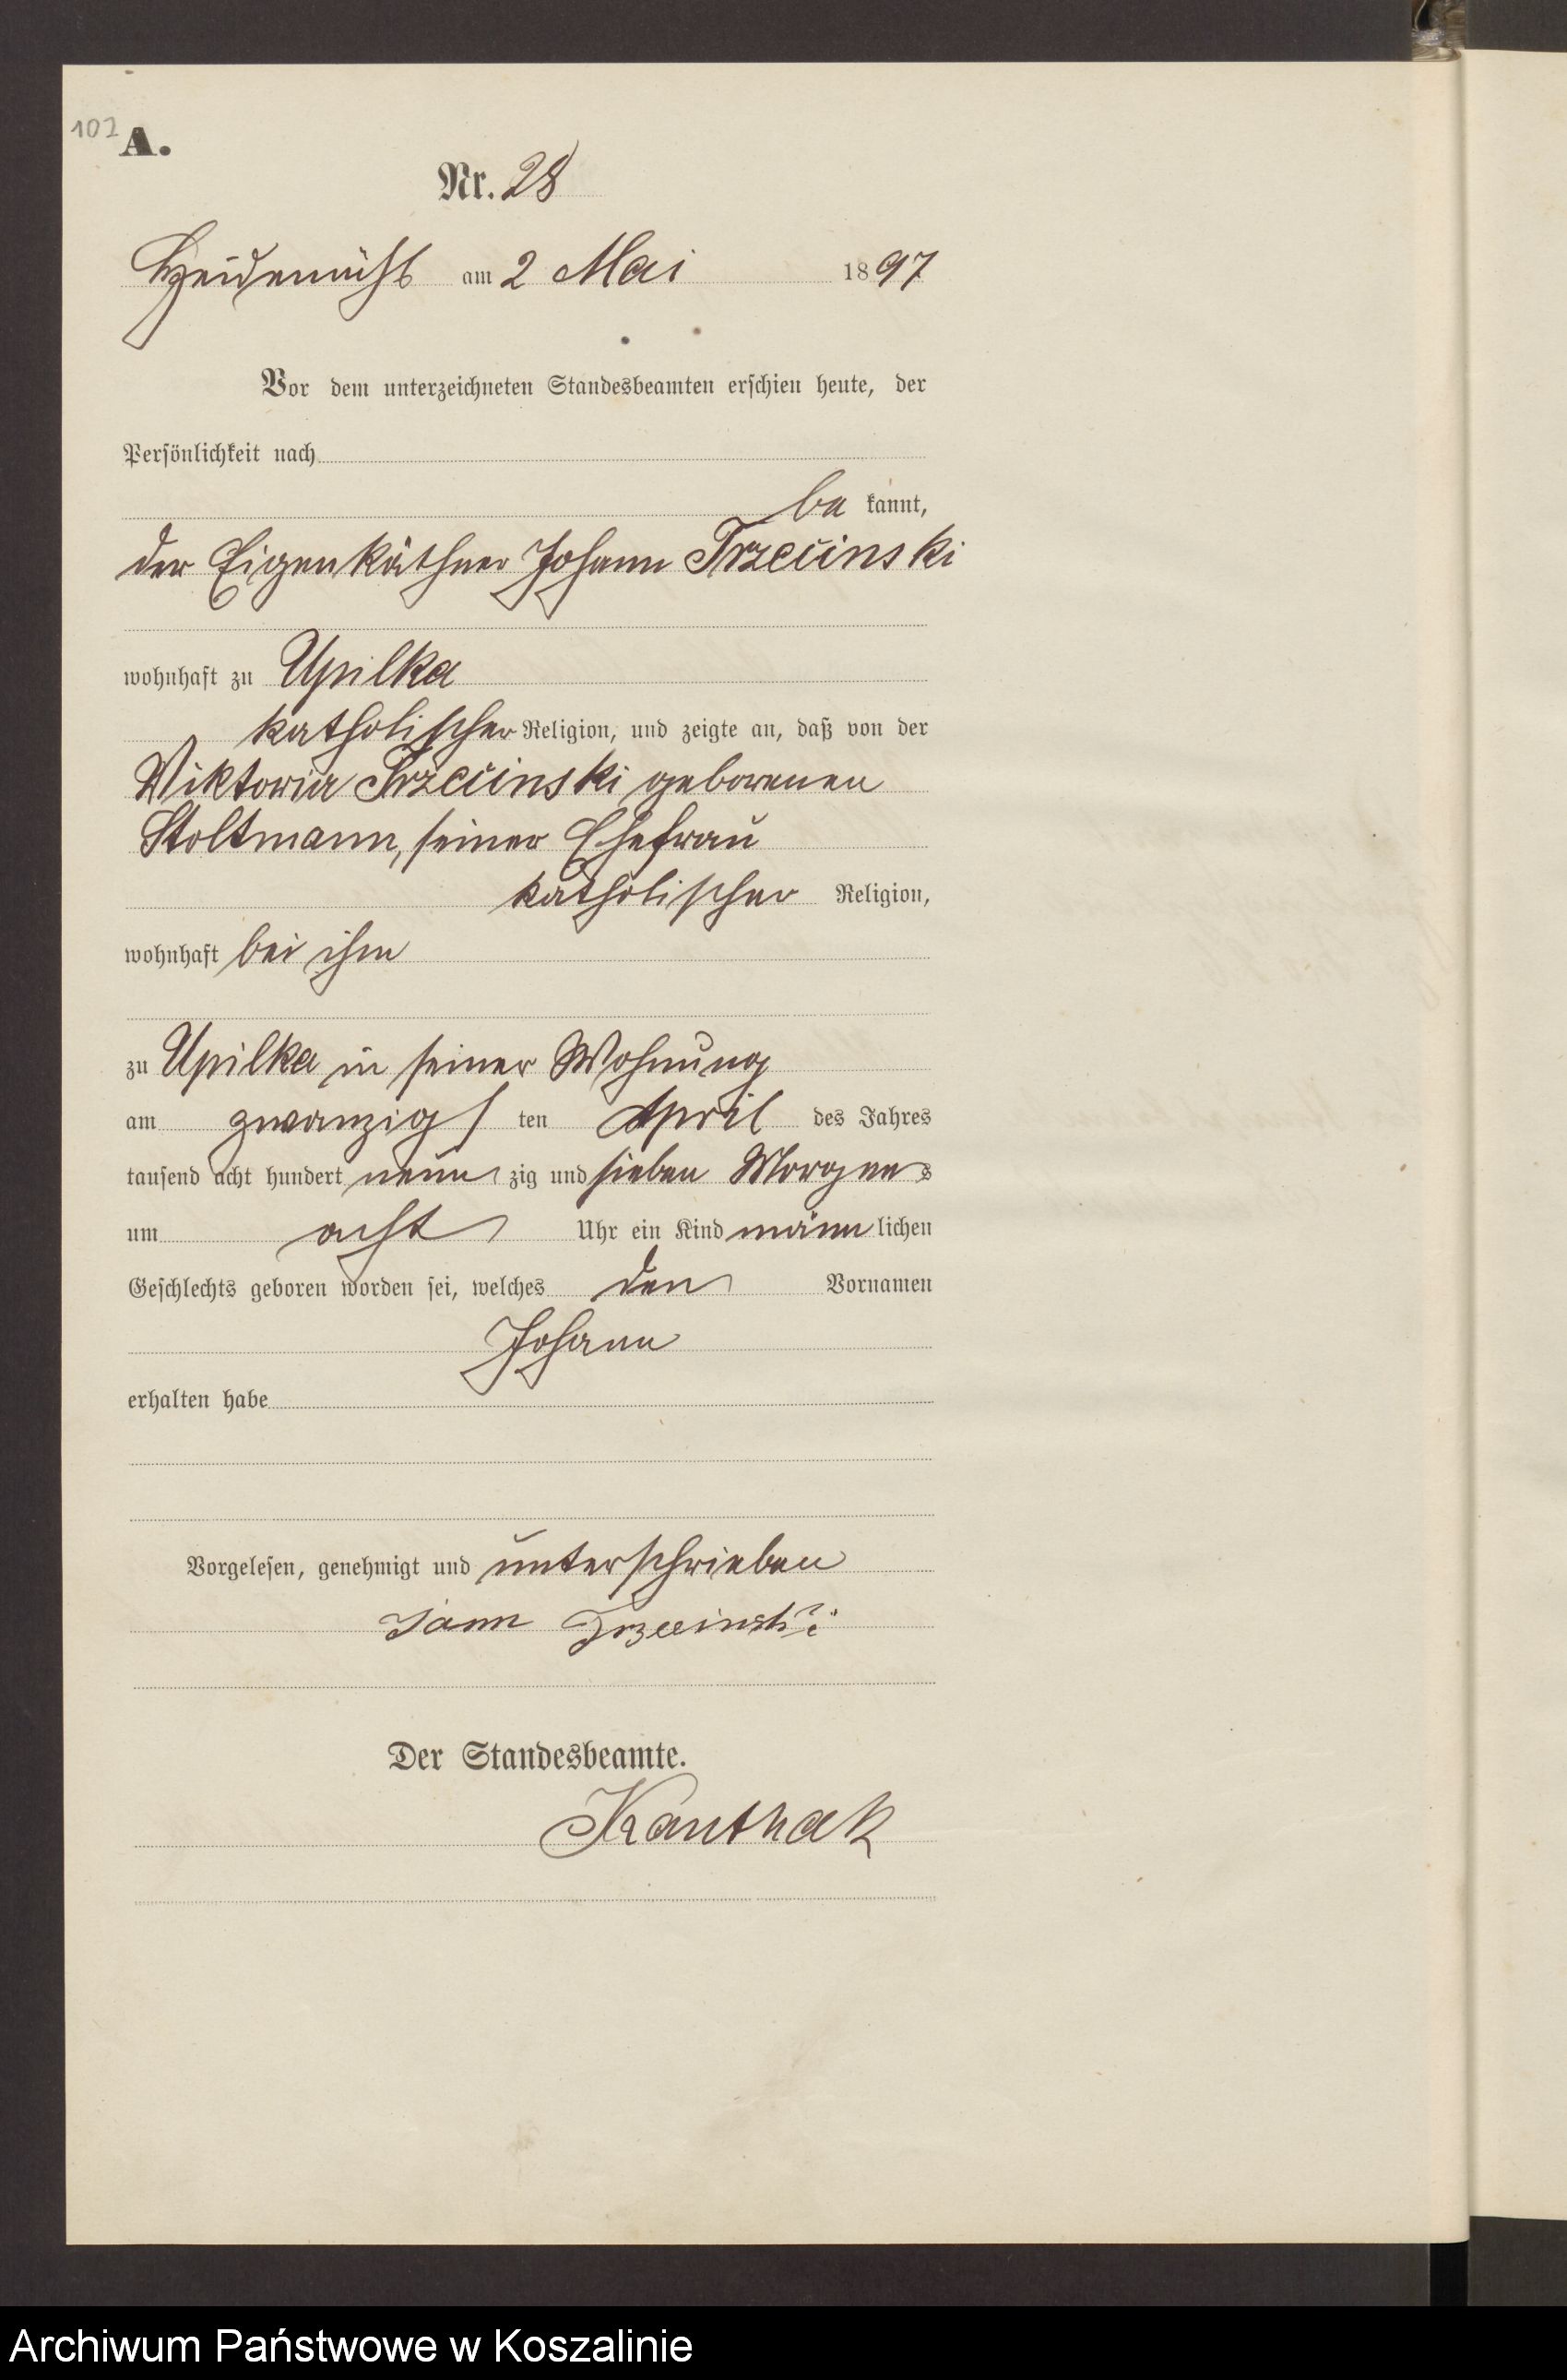 102 A.
Nr. 28
Heidemühl am 2 Mai 1897
Vor dem unterzeichneten Standesbeamten erschien heute, der
Persönlichkeit nach
be kannt,
der Eigenkäthner Johann Trzecinski
wohnhaft zu Upilka
katholischer Religion, und zeigte an, daß von der
Viktoria Trzecinski geborenen
Stoltmann, seiner Ehefrau
katholischer Religion,
wohnhaft bei ihm
zu Upilka in seiner Wohnung
am zwanzigs ten April des Jahres
tausend acht hundert neun zig und sieben Morgens
um acht Uhr ein Kind männ lichen
Geschlechts geboren worden sei, welches den Vornamen
Johann
erhalten habe
Vorgelesen, genehmigt und unterschrieben
Jann Trzecinski
Der Standesbeamte.
Kanthak
Archiwum Państwowe w Koszalinie